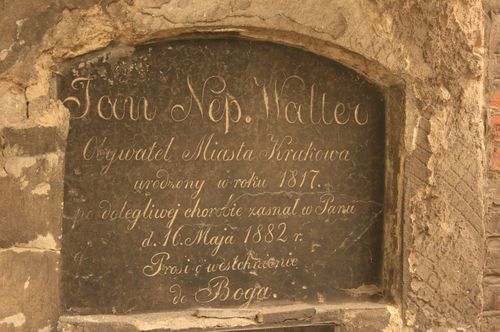 Jan Nep. Walter
Obywatel Miasta Krakowa
urodzony w roku 1817.
po dolegliwej chorobie zasnął w Panu
d. 16. Maja 1882 r.
Prosi o westchnienie
do Boga.